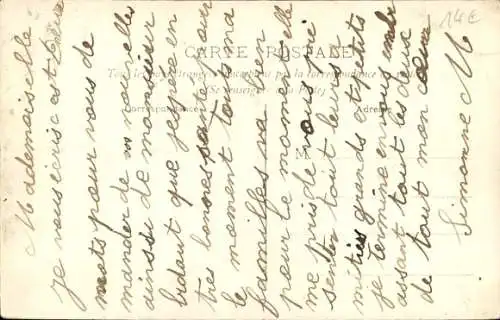 14€
CARTE POSTALE
Tous les pays étrangers n'acceptent pas la correspondance au recto
(Se renseigner à la Poste)
Correspondance
Adresse
M
Mademoiselle
je vous écrisc est
mots pour vous de
mander de vos nouvelles
ainsi de monsieur
bidaut que j espère en
tres bonnes santé pour
le moment toute ma
familles va bien
pour le moment elle
me pris de vous pré
senter tout leurs a
mitiés grands et petits
je termine en vous embr
assant tout les deux
de tout mon cœur
Simonne M